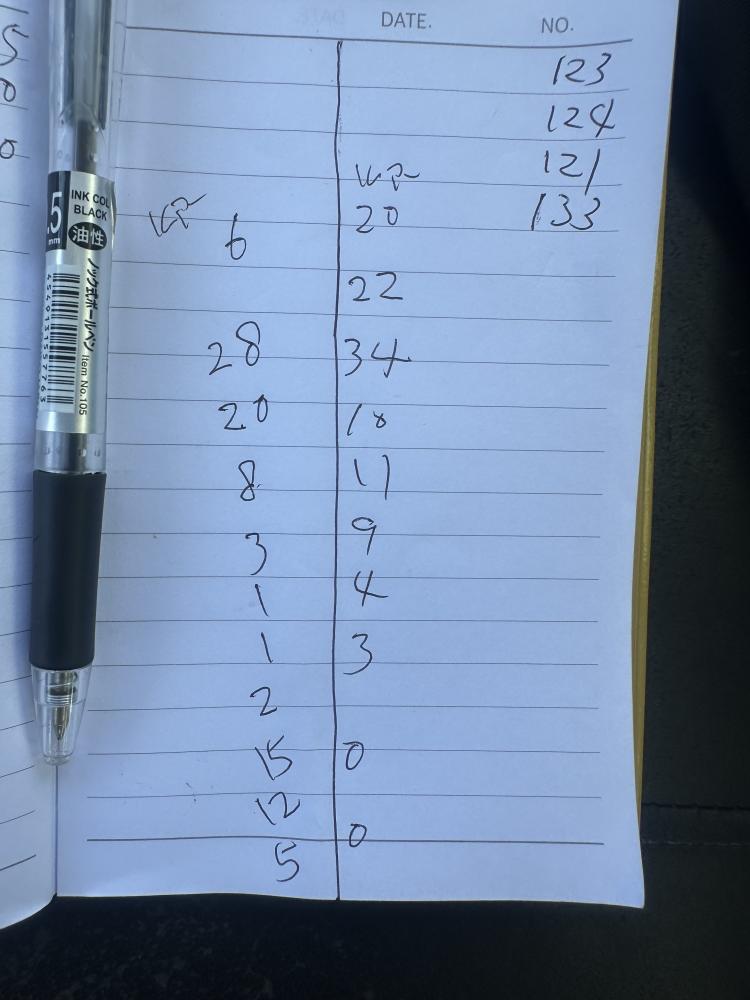 DATE. NO.
123
124
121
133
20
6
22
28 34
20 18
8 11
3 9
1 4
1 3
2
15 0
12
0
5
5
0
0
INK COL
BLACK
.5
mm
油性
ノック式ボールペン
Item No.105
4540131557763